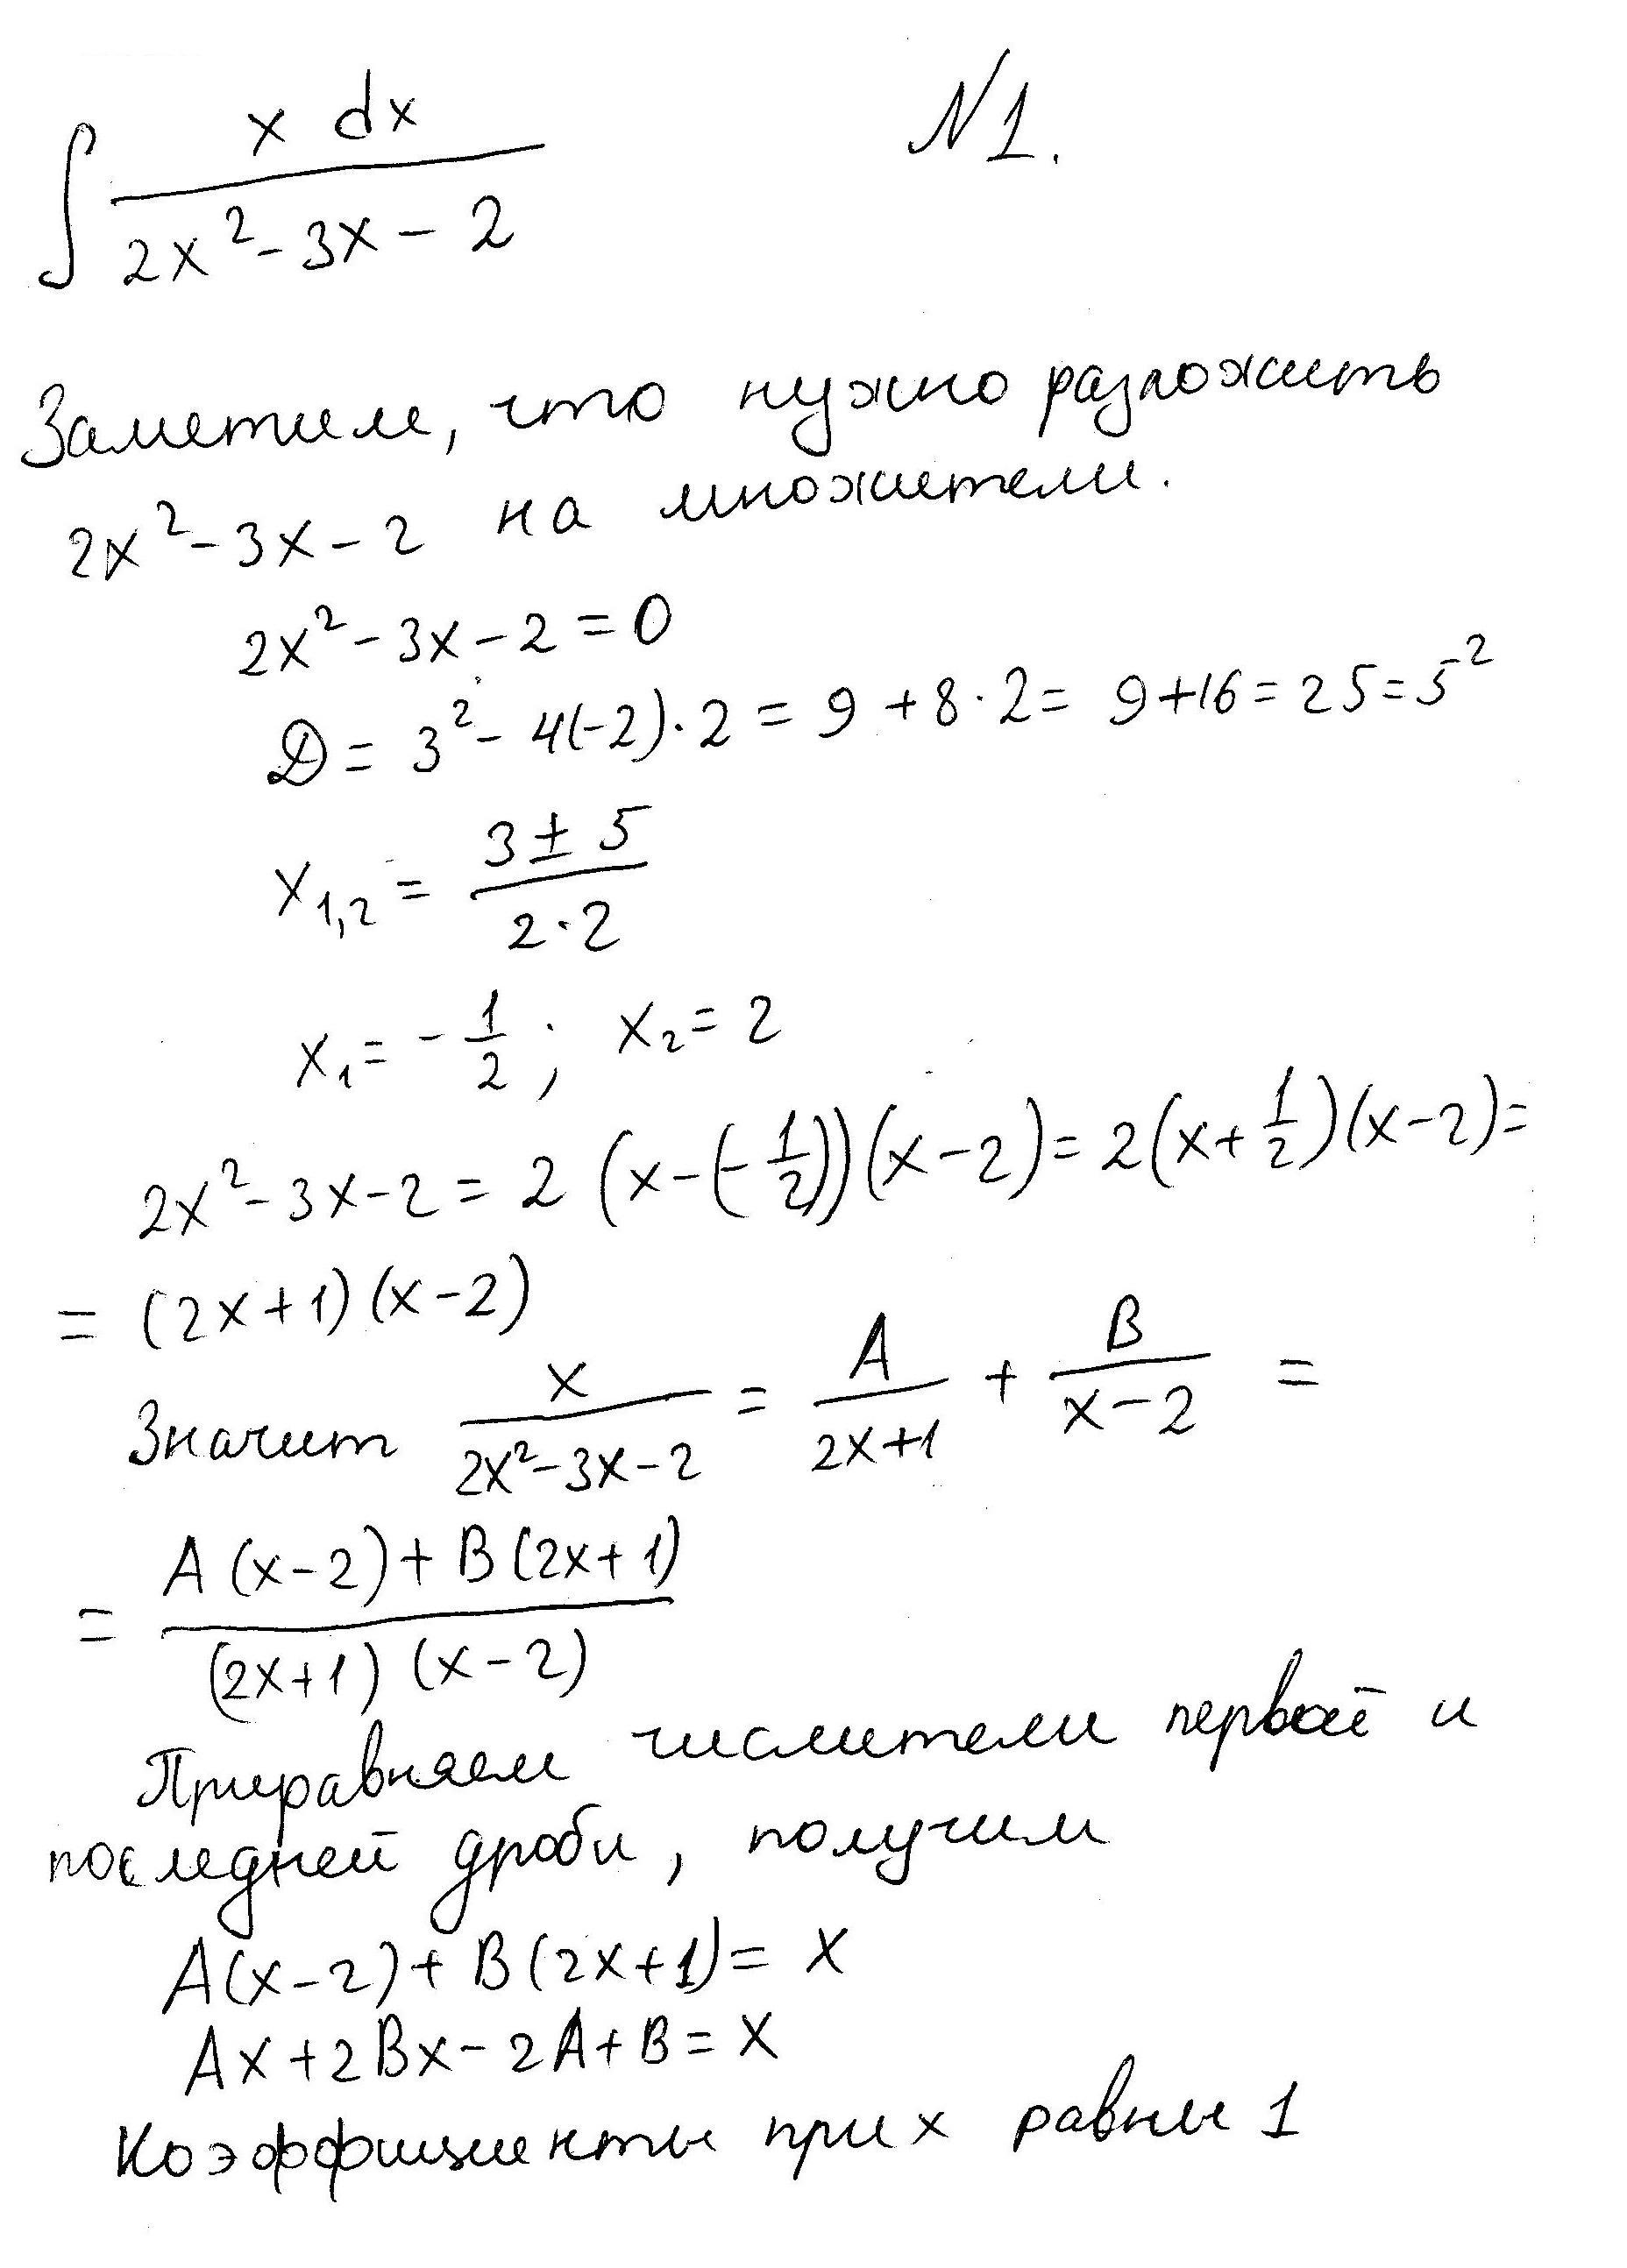 ∫ x dx / (2x² - 3x - 2) N1.
Заметим, что нужно разложить
2x² - 3x - 2 на множители.
2x² - 3x - 2 = 0
D = 3² - 4(-2)·2 = 9 + 8·2 = 9 + 16 = 25 = 5²
x₁,₂ = (3 ± 5) / (2·2)
x₁ = -1/2 ; x₂ = 2
2x² - 3x - 2 = 2 (x - (-1/2))(x - 2) = 2(x + 1/2)(x - 2) =
= (2x + 1)(x - 2)
Значит x / (2x² - 3x - 2) = A / (2x + 1) + B / (x - 2) =
= (A(x - 2) + B(2x + 1)) / ((2x + 1)(x - 2))
Приравняем числители первой и
последней дроби, получим
A(x - 2) + B(2x + 1) = x
Ax + 2Bx - 2A + B = x
Коэффициенты при x равны 1